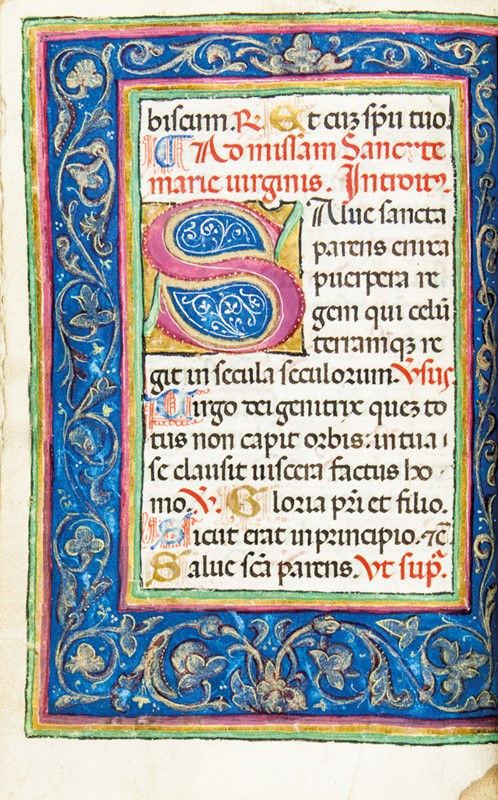 biscum. R Et cuz spu tuo.
Ad missam Sancte
marie uirginis. Introitꝰ.
SAlue sancta
parens enixa
puerpera re
gem qui celū
terramqꝫ re
git in secula seculorum. Vsus.
Uirgo dei genitrix quez to
tus non capit orbis: in tua
se clausit uiscera factus ho
mo. V. Gloria pri et filio.
Sicut erat in principio. ⁊c̄
Salue scā parens. Vt sup̄.